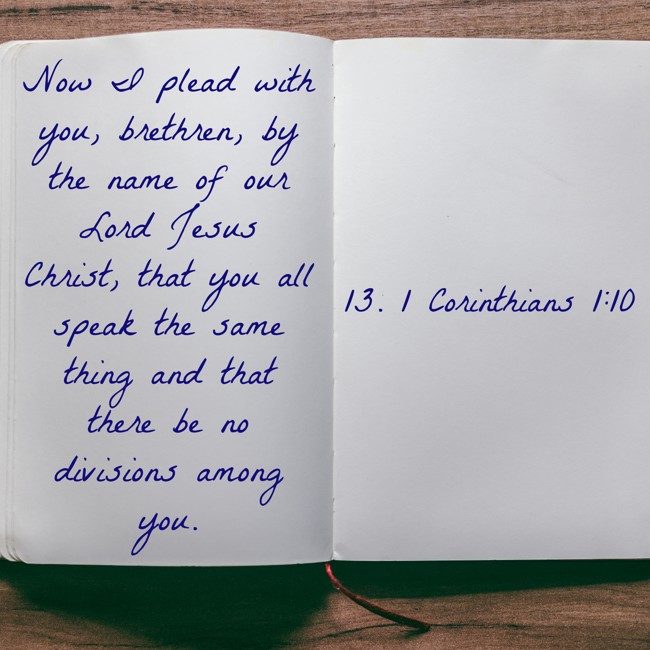 Now I plead with
you, brethren, by
the name of our
Lord Jesus
Christ, that you all
speak the same
thing and that
there be no
divisions among
you.
13. 1 Corinthians 1:10